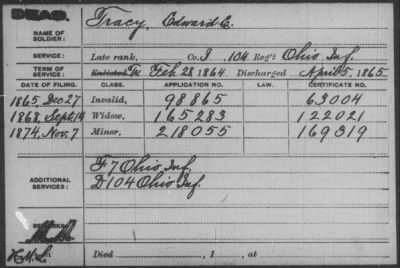 DEAD.
NAME OF SOLDIER: Tracy, Edward C.
SERVICE: Late rank, Co. I, 104 Reg't Ohio Inf.
TERM OF SERVICE: Enlisted Tr. Feb. 28, 1864 Discharged April 5, 1865
DATE OF FILING. CLASS. APPLICATION NO. LAW. CERTIFICATE NO.
1865, Dec 27 Invalid, 98865 63004
1868, Sept. 14 Widow, 165283 122021
1874, Nov. 7 Minor, 218055 169319
F 7 Ohio Inf.
ADDITIONAL SERVICES: D 104 Ohio Inf.
REMARKS:
Died , 1 , at